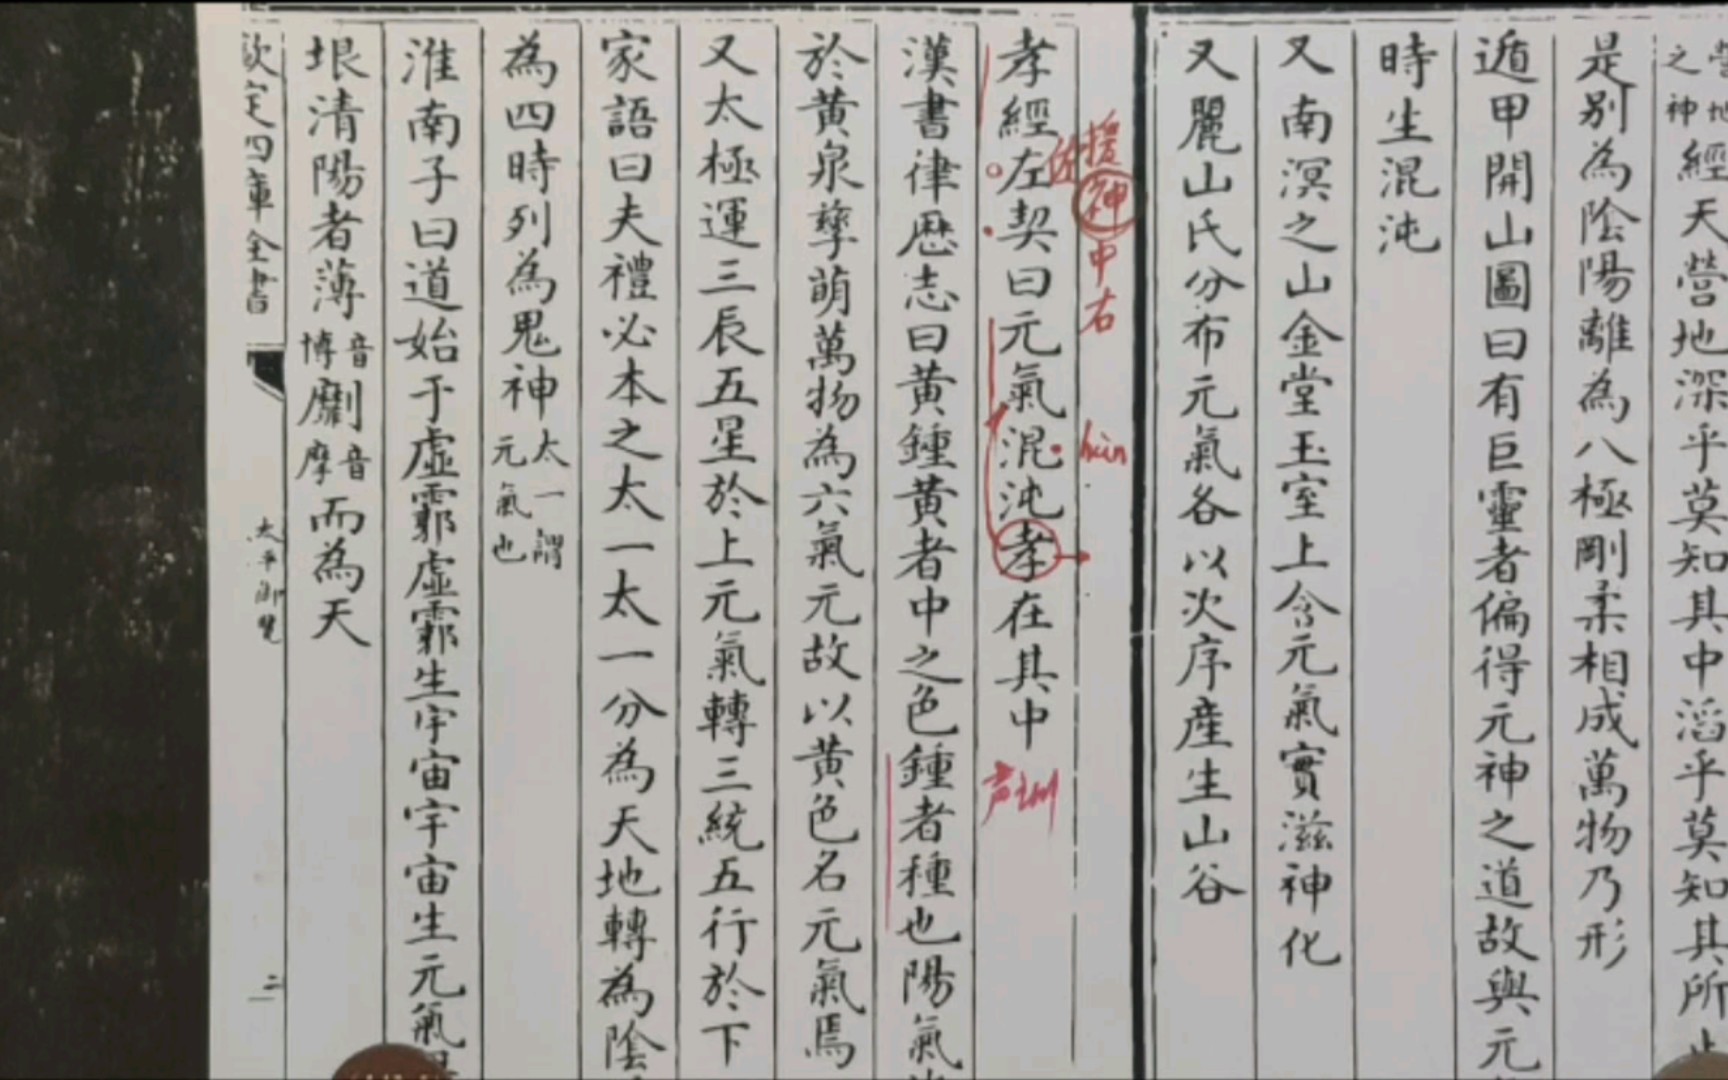 營地
之神
經天營地深乎莫知其中滔乎莫知其所
是別為陰陽離為八極剛柔相成萬物乃形
遁甲開山圖曰有巨靈者偏得元神之道故與元
時生混沌
又南溟之山金堂玉室上含元氣實滋神化
又麗山氏分布元氣各以次序產生山谷
援神
中右
hún
孝經左契曰元氣混沌孝在其中
漢書律歷志曰黄鍾黄者中之色鍾者種也陽氣
於黄泉孳萌萬物為六氣元故以黄色名元氣焉
又太極運三辰五星於上元氣轉三統五行於下
家語曰夫禮必本之太一太一分為天地轉為陰
為四時列為鬼神
太一謂
元氣也
淮南子曰道始于虛霩虛霩生宇宙宇宙生元氣
垠清陽者薄
音
博
劘
音
摩
而為天
欽定四庫全書
太平御覽
二